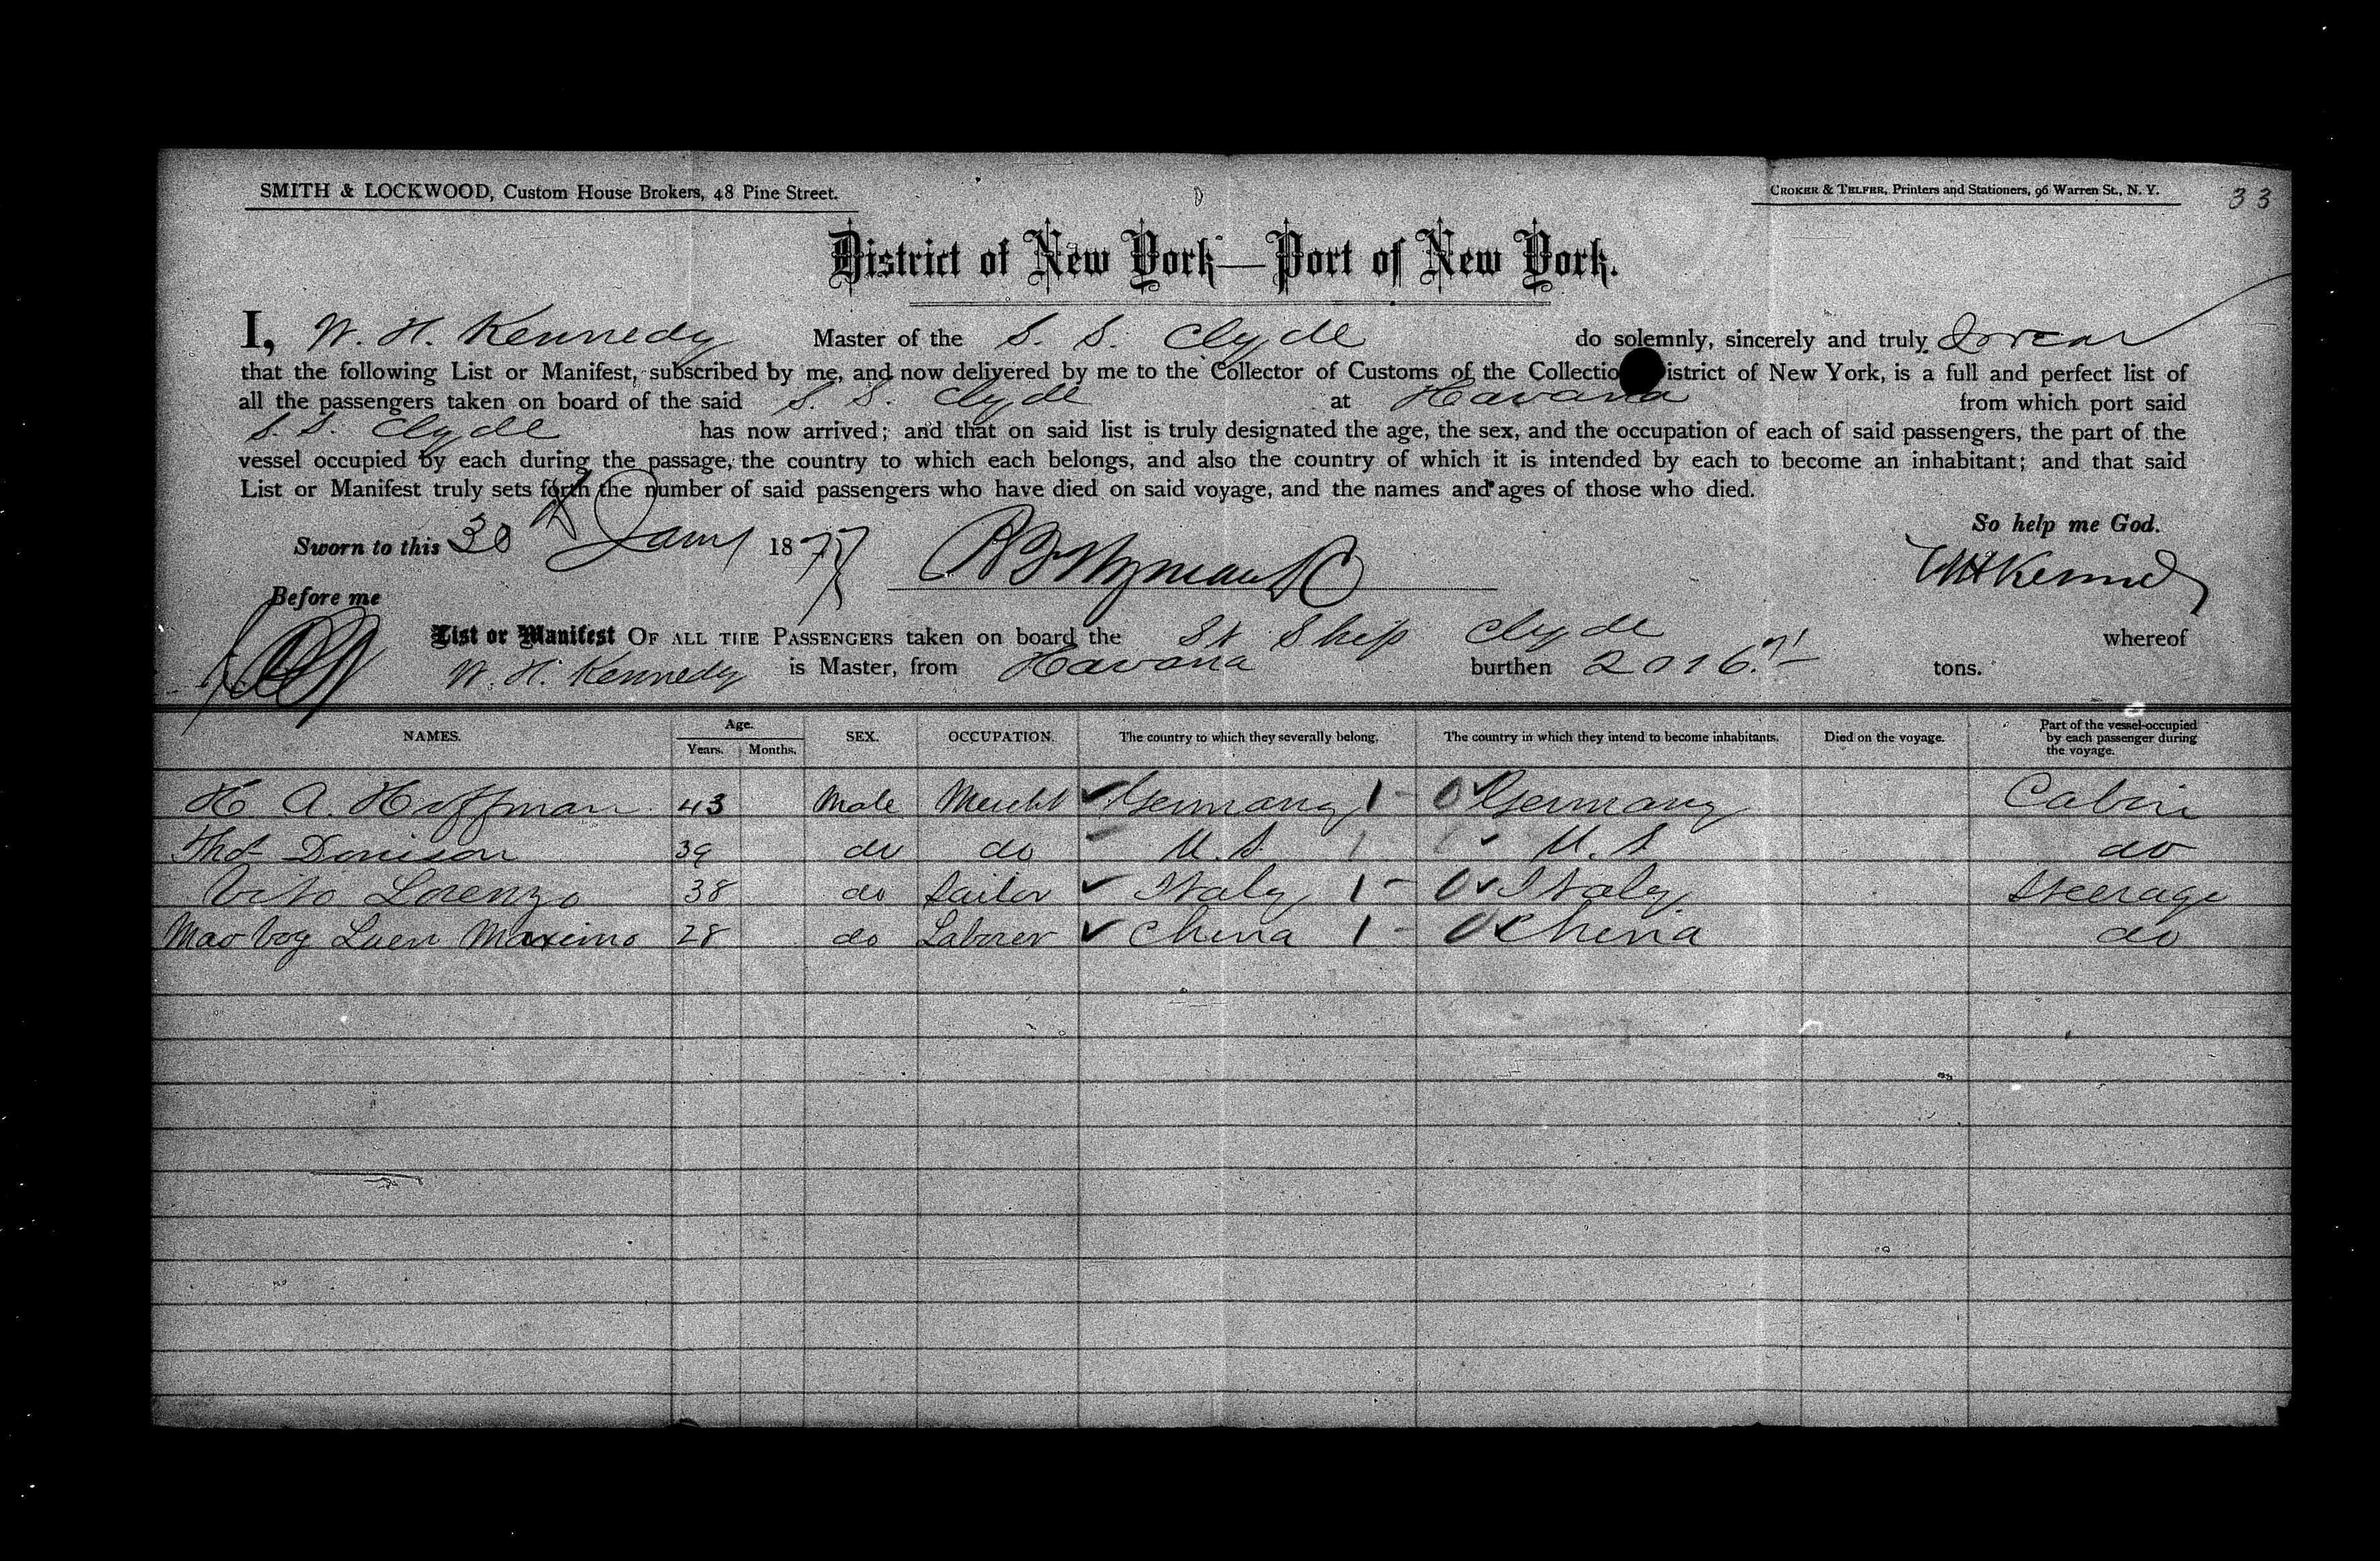 SMITH & LOCKWOOD, Custom House Brokers, 48 Pine Street.
CROKER & TELFER, Printers and Stationers, 96 Warren St., N. Y.
33
District of New York—Port of New York.
I, W. H. Kennedy Master of the S. S. Clyde do solemnly, sincerely and truly Swear
that the following List or Manifest, subscribed by me, and now delivered by me to the Collector of Customs of the Collectio istrict of New York, is a full and perfect list of
all the passengers taken on board of the said S. S. Clyde at Havana from which port said
S. S. Clyde has now arrived; and that on said list is truly designated the age, the sex, and the occupation of each of said passengers, the part of the
vessel occupied by each during the passage, the country to which each belongs, and also the country of which it is intended by each to become an inhabitant; and that said
List or Manifest truly sets forth the number of said passengers who have died on said voyage, and the names and ages of those who died.
So help me God.
Sworn to this 30th Jany 1877
W H Kennedy
Before me
List or Manifest OF ALL THE PASSENGERS taken on board the St Ship Clyde whereof
W. H. Kennedy is Master, from Havana burthen 2016 tons.
NAMES. Age. Years. Months. SEX. OCCUPATION. The country to which they severally belong. The country in which they intend to become inhabitants. Died on the voyage. Part of the vessel occupied by each passenger during the voyage.
H A. Hoffman 43 Male Mercht Germany 1 - 0 Germany Cabin
Thos Donison 39 do do U. S. 1 1 U. S do
Vito Lorenzo 38 do Sailor Italy 1 - 0 Italy Steerage
Luen Maximo 28 do Laborer China 1 - 0 China do